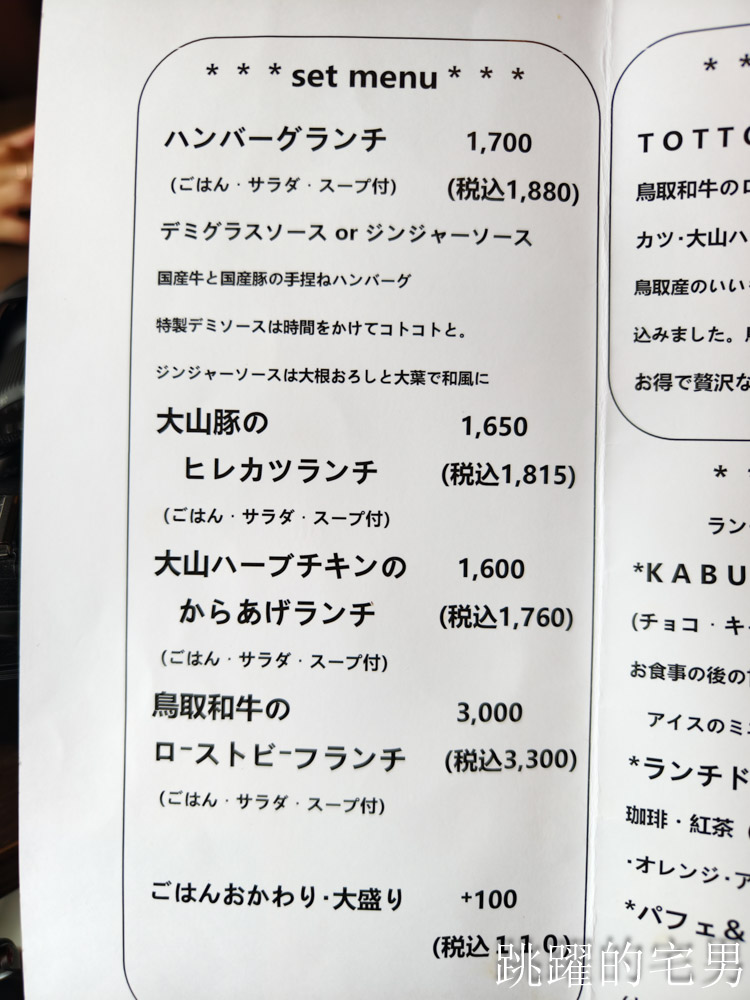 * * * set menu * * *
ハンバーグランチ 1,700
(ごはん・サラダ・スープ付) (税込1,880)
デミグラスソース or ジンジャーソース
国産牛と国産豚の手捏ねハンバーグ
特製デミソースは時間をかけてコトコトと。
ジンジャーソースは大根おろしと大葉で和風に
大山豚の 1,650
ヒレカツランチ (税込1,815)
(ごはん・サラダ・スープ付)
大山ハーブチキンの 1,600
からあげランチ (税込1,760)
(ごはん・サラダ・スープ付)
鳥取和牛の 3,000
ローストビーフランチ (税込3,300)
(ごはん・サラダ・スープ付)
ごはんおかわり・大盛り +100
(税込110)
* *
TOTTO
鳥取和牛の
カツ・大山ハ
鳥取産のいい
込みました。
お得で贅沢な
*
ラン
*KABU
(チョコ・キ
お食事の後の
アイスのミ
*ランチド
珈琲・紅茶
・オレンジ・ア
*パフェ&
跳躍的宅男